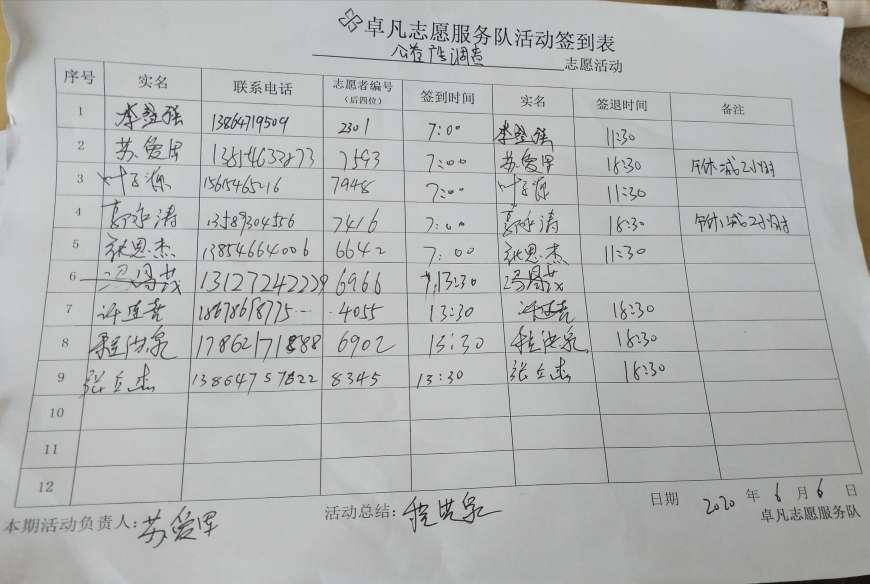 卓凡志愿服务队活动签到表
公益广告调查 志愿活动
序号 实名 联系电话 志愿者编号（后四位） 签到时间 实名 签退时间 备注
1 李登强 13864719509 2301 7:00 李登强 11:30
2 苏爱军 13854633873 7593 7:00 苏爱军 18:30 午休减2小时
3 叶子源 15615465216 7948 7:00 叶子源 11:30
4 郭永涛 13589304556 7416 7:00 郭永涛 18:30 午休减2小时
5 张恩杰 13854664006 6642 7:00 张恩杰 11:30
6 冯国茂 13127242229 6966 13:30 冯国茂
7 许连尧 18678618775 4055 13:30 许连尧 18:30
8 程洪泉 17862171888 6902 13:30 程洪泉 18:30
9 张立杰 13864757622 8345 13:30 张立杰 18:30
10
11
12
本期活动负责人：苏爱军 活动总结：程洪泉 日期 2020 年 6 月 6 日
卓凡志愿服务队